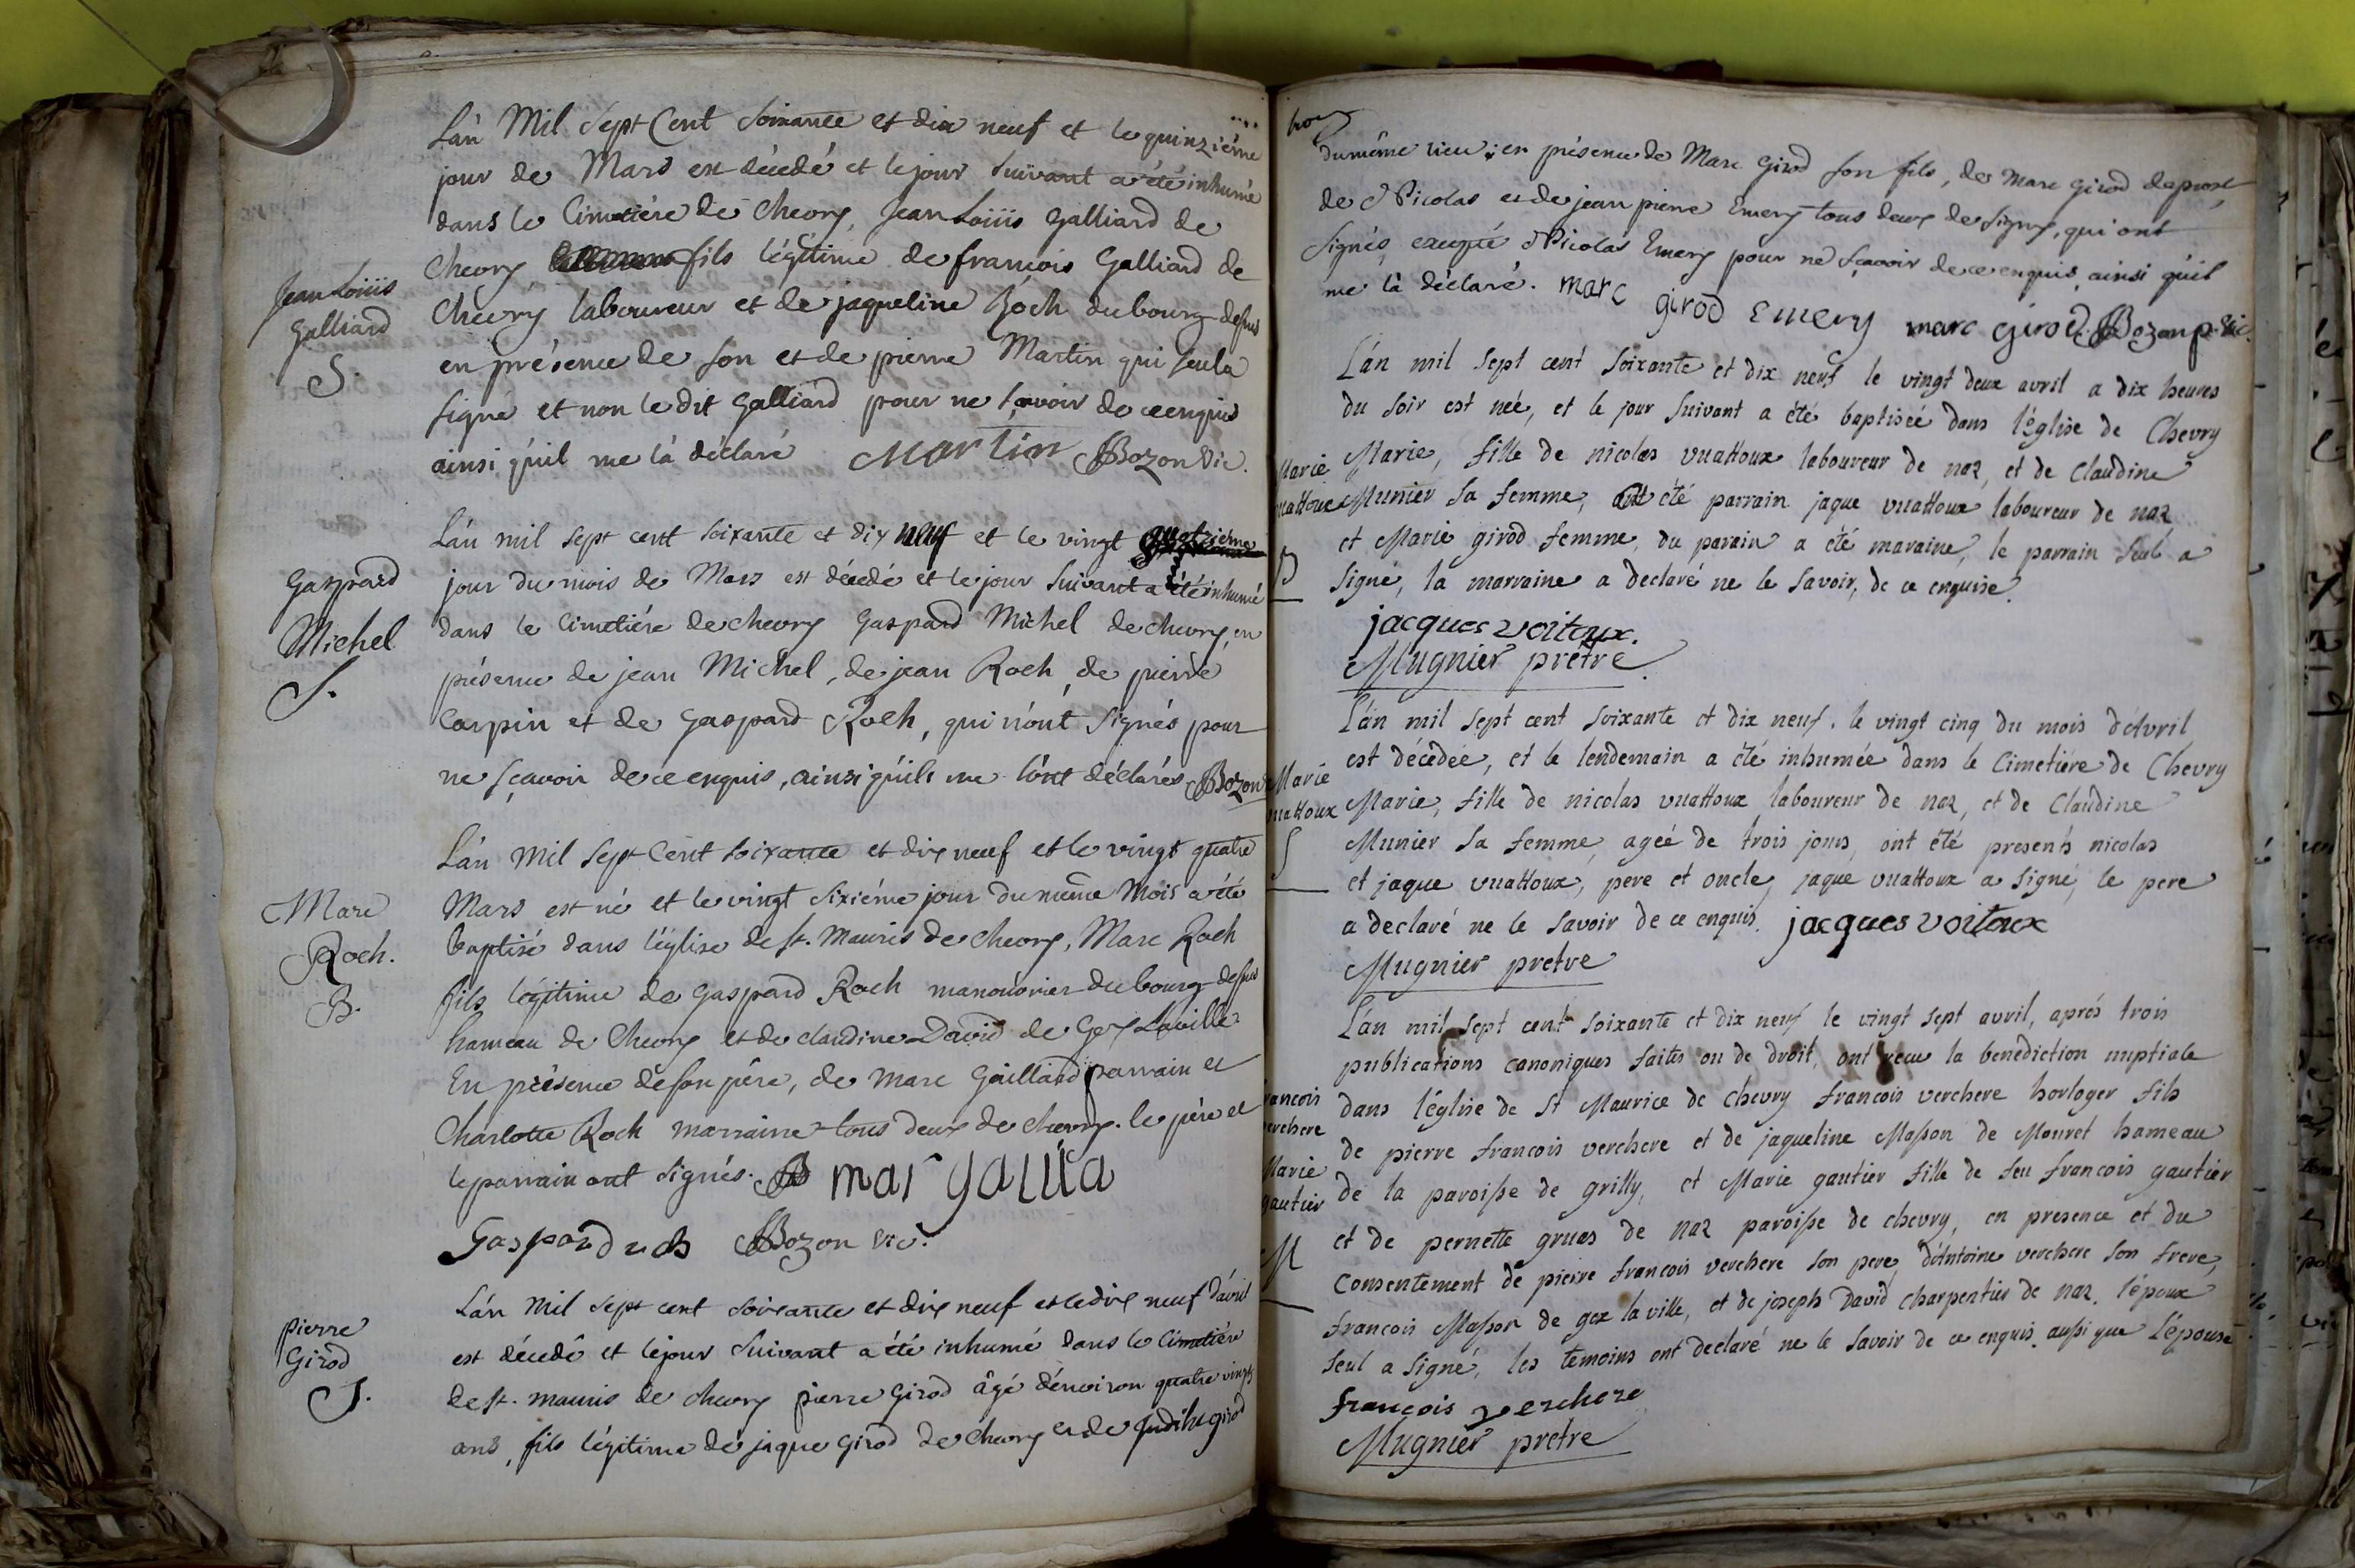 L'an Mil Sept Cent Soixante et dix neuf et le quinziéme
jour de Mars est décedé et le jour Suivant a été inhumé
dans le Cimetiére de Chevry, Jean Loüis Galliard de
Chevry fils légitime de francois Galliard de
Jean Loüis
Galliard
S.
Chevry laboureur et de jaqueline Roch du bourg dessus
en présence de son et de pierre Martin qui seul a
signé et non le dit Galliard pour ne sçavoir de ce enquis
ainsi qu'il me l'a déclaré Martin Bozon vic.
L'an mil sept cent soixante et dix neuf et le vingt
Gaspard
Michel
S.
jour du mois de Mars est décedé et le jour Suivant a été inhumé
dans le Cimetiére de chevry Gaspard Michel de chevry, en
présence de jean Michel, de jean Roch, de pierre
Carpin et de Gaspard Roch, qui n'ont signés pour
ne sçavoir de ce enquis, ainsi qu'ils me l'ont déclarés Bozon
L'an Mil Sept Cent soixante et dix neuf et le vingt quatre
Marc
Roch.
B.
Mars est né et le vingt sixiéme jour du même Mois a été
baptisé dans l'église de st. Mauris de chevry, Marc Roch
fils légitime de Gaspard Roch manouvrier du bourg dessus
hameau de Chevry et de claudine David de Gex Laville
En présence de son père, de Marc Gaillard parrain et
Charlotte Roch marraine tous deux de chevry. le père et
le parrain ont signés. mar galiia
Gaspard rich Bozon vic.
L'an Mil Sept cent soixante et dix neuf et le dix neuf d'avril
pierre
Girod
S.
est décedé et le jour Suivant a été inhumé dans le cimetiére
de st. mauris de chevry pierre Girod âgé d'environ quatre vingts
ans, fils légitime de jaque Girod de chevry et de Judithe girod
du même lieu, en présence de Marc Girod son fils, de Marc Girod
de Nicolas et de jean pierre Emery tous deux de Signy, qui ont
signés, excepté Nicolas Emery pour ne sçavoir de ce enquis, ainsi qu'il
me l'a déclaré. marc girod Emery marc girod Bozon p. vic.
L'an mil sept cent soixante et dix neuf le vingt deux avril a dix heures
du soir est née, et le jour suivant a été baptisée dans l'église de Chevry
Marie
vuattoux
B
Marie, fille de nicolas vuattoux laboureur de naz, et de Claudine
Munier sa femme, ont été parrain jaque vuattoux laboureur de naz
et Marie girod femme du parain a été maraine, le parrain seul a
signé, la marraine a declaré ne le savoir, de ce enquise.
jacques voitoux.
Mugnier prêtre.
L'an mil sept cent soixante et dix neuf. le vingt cinq du mois d'Avril
est décedée, et le lendemain a été inhumée dans le Cimetiére de Chevry
Marie
vuattoux
S
Marie, fille de nicolas vuattoux laboureur de naz, et de Claudine
Munier sa femme, ageé de trois jours, ont été presents nicolas
et jaque vuattoux, pere et oncle, jaque vuattoux a signé, le pere
a declaré ne le savoir de ce enquis. jacques voitoux
Mugnier pretre
L'an mil sept cent soixante et dix neuf le vingt sept avril, aprés trois
publications canoniques faites ou de droit, ont recu la benediction nuptiale
francois
verchere
Marie
gautier
M
dans l'église de St Maurice de Chevry francois verchere horloger fils
de pierre francois verchere et de jaqueline Masson de Mouret hameau
de la paroisse de grilly, et Marie gautier fille de feu francois gautier
et de pernette gruas de naz paroisse de chevry, en presence et du
consentement de pierre francois verchere son pere, d'Antoine verchere son frere,
francois Masson de gex la ville, et de joseph David charpentier de naz. l'époux
seul a signé, les temoins ont declaré ne le savoir de ce enquis, aussi que l'épouse
françois verchere
Mugnier pretre